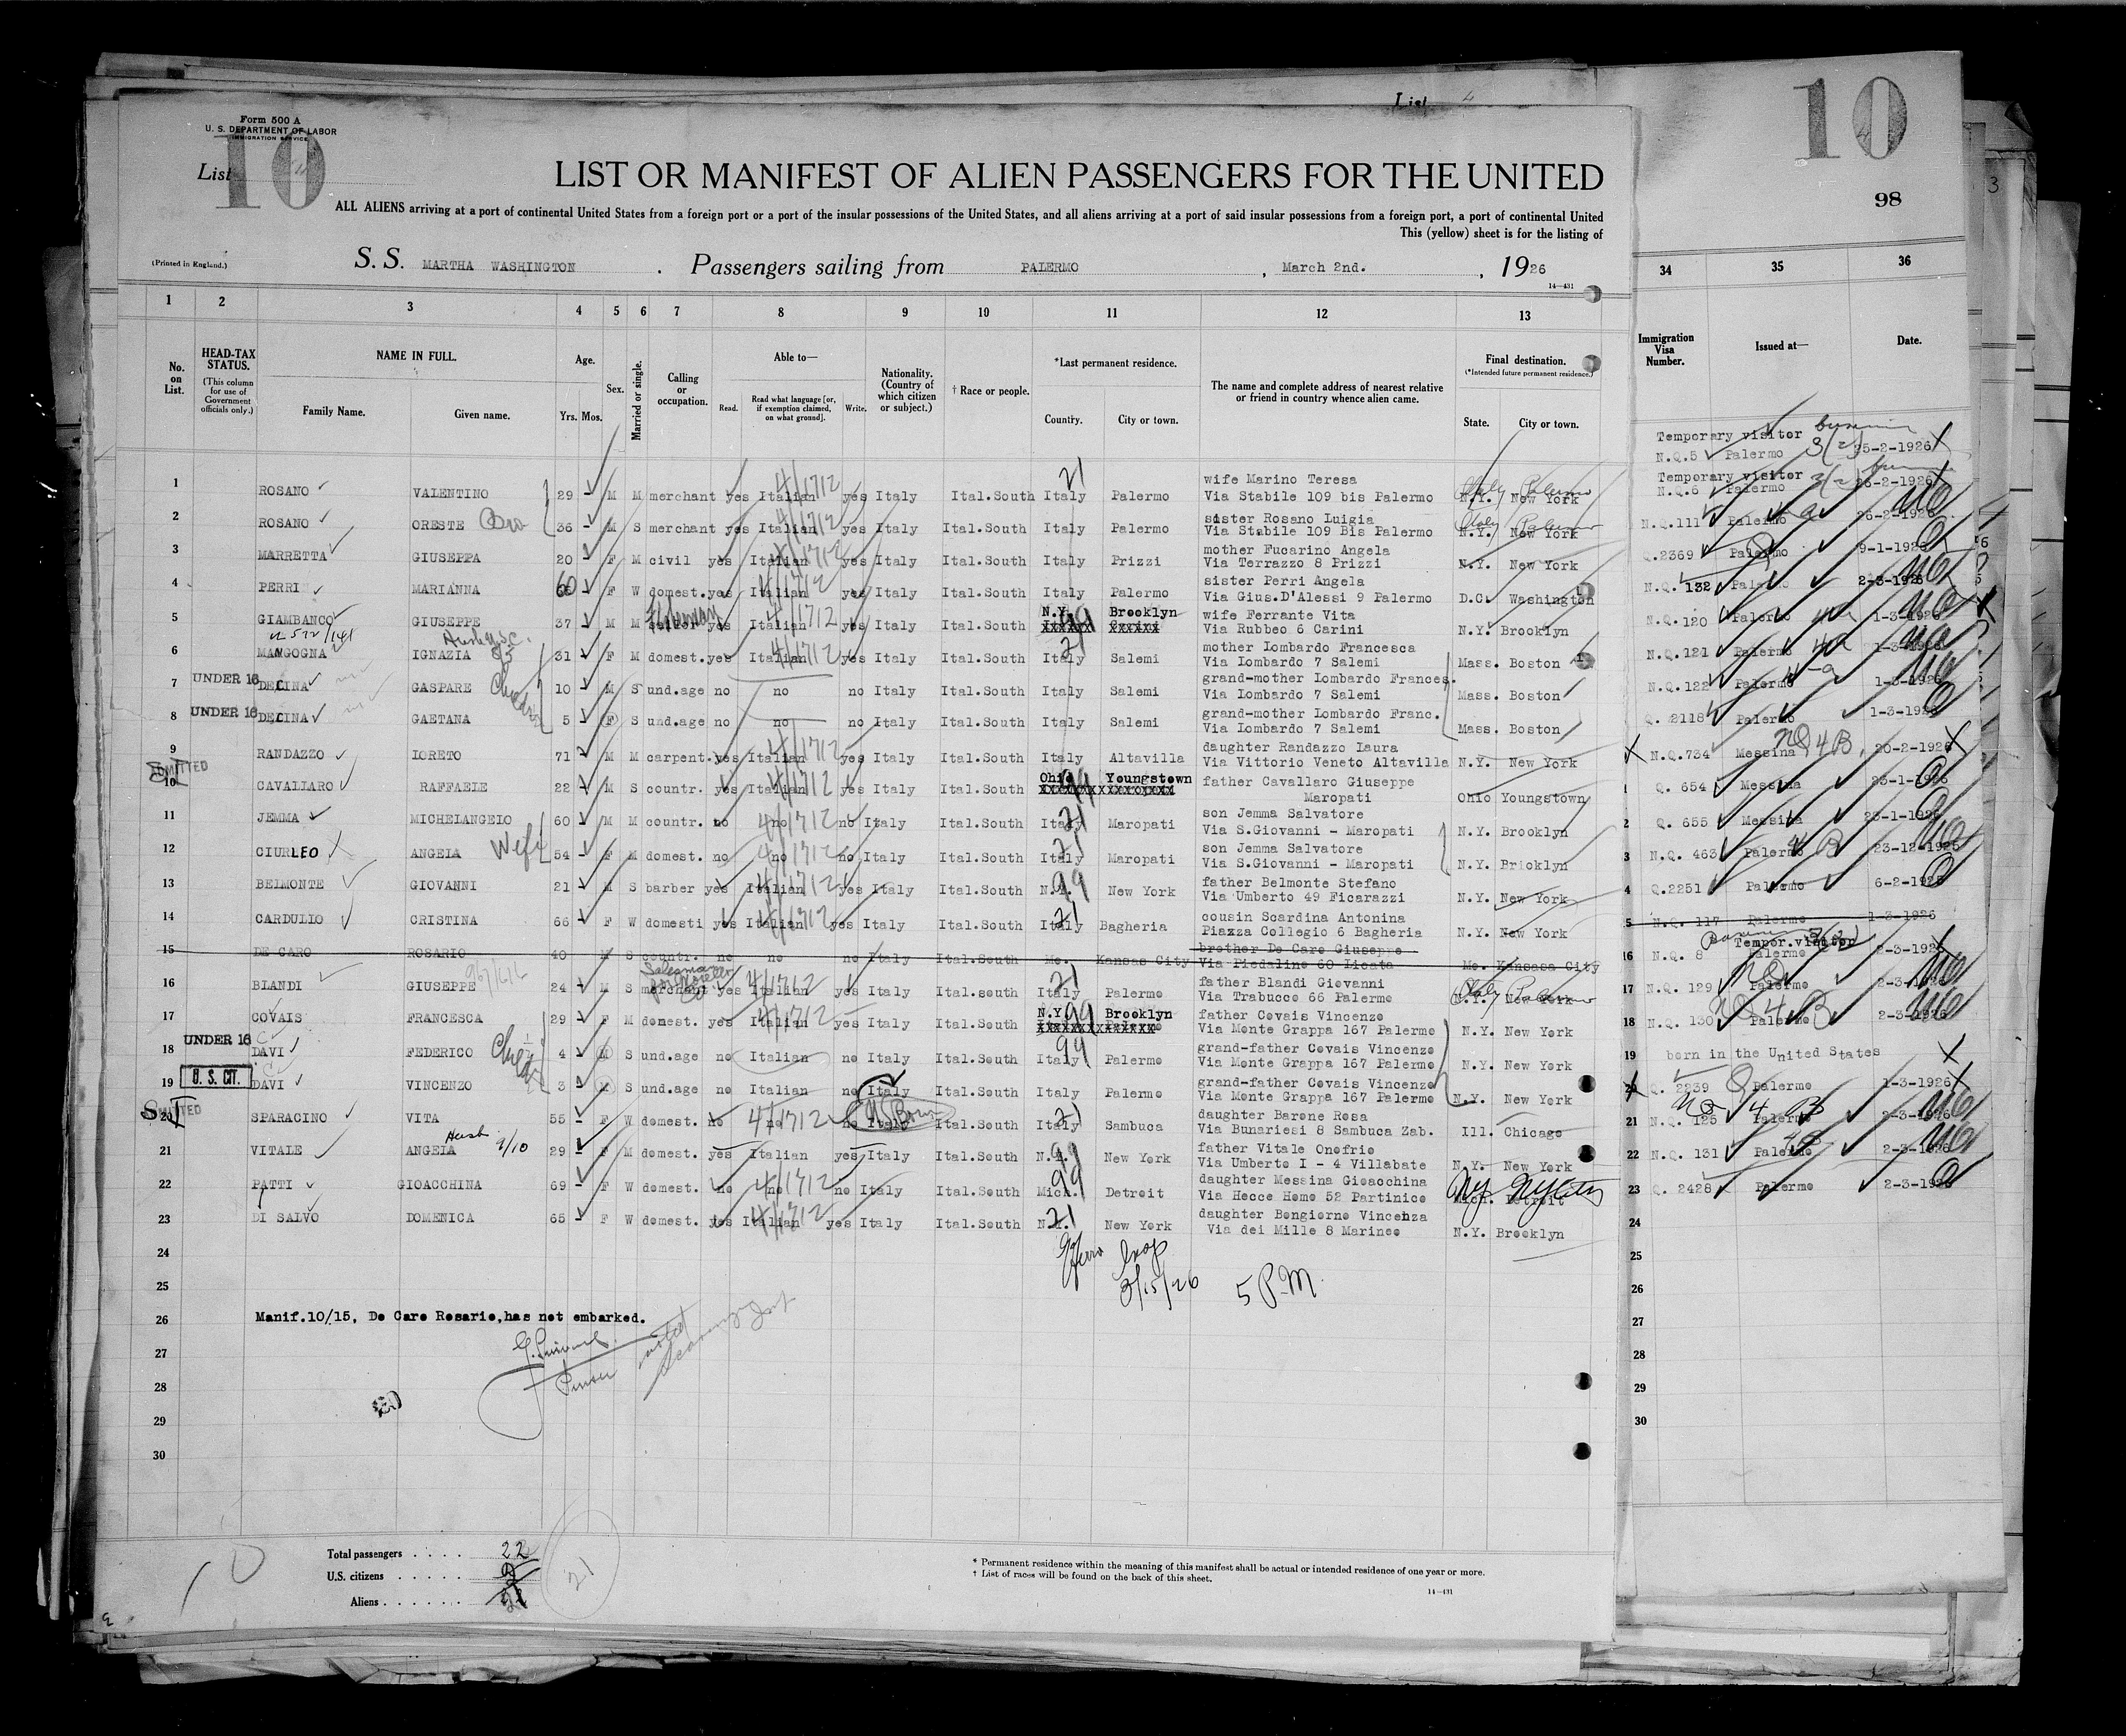 List 4
Form 500 A
U. S. DEPARTMENT OF LABOR
IMMIGRATION SERVICE
List 10
10
98
3
LIST OR MANIFEST OF ALIEN PASSENGERS FOR THE UNITED
ALL ALIENS arriving at a port of continental United States from a foreign port or a port of the insular possessions of the United States, and all aliens arriving at a port of said insular possessions from a foreign port, a port of continental United
This (yellow) sheet is for the listing of
(Printed in England.) S. S. MARTHA WASHINGTON . Passengers sailing from PALERMO , March 2nd. , 1926
14—431
1 2 3 4 5 6 7 8 9 10 11 12 13 34 35 36
No. on List. HEAD-TAX STATUS. (This column for use of Government officials only.) NAME IN FULL. Family Name. Given name. Age. Yrs. Mos. Sex. Married or single. Calling or occupation. Able to— Read. Read what language [or, if exemption claimed, on what ground]. Write. Nationality. (Country of which citizen or subject.) † Race or people. *Last permanent residence. Country. City or town. The name and complete address of nearest relative or friend in country whence alien came. Final destination. (*Intended future permanent residence.) State. City or town. Immigration Visa Number. Issued at— Date.
Temporary visitor
N.Q.5 Palermo 3(2) 25-2-1926
21 wife Marino Teresa
1 ROSANO VALENTINO 29 M M merchant yes Italian 4/1712 yes Italy Ital.South Italy Palermo Via Stabile 109 bis Palermo N.Y. New York Italy Palermo
Temporary visitor
N.Q.6 Palermo 3(2) 26-2-1926
sister Rosano Luigia
2 ROSANO ORESTE Bro 36 M S merchant yes Italian 4/1712 yes Italy Ital.South Italy Palermo Via Stabile 109 Bis Palermo N.Y. New York Italy Palermo
N.Q.111 Palermo 26-2-1926
mother Fucarino Angela
3 MARRETTA GIUSEPPA 20 F M civil yes Italian 4/1712 yes Italy Ital.South Italy Prizzi Via Terrazzo 8 Prizzi N.Y. New York
Q.2369 Palermo 9-1-1926
sister Perri Angela
4 PERRI MARIANNA 60 F W domest. yes Italian 4/1712 yes Italy Ital.South Italy Palermo Via Gius.D'Alessi 9 Palermo D.C. Washington
N.Q. 132 Palermo 2-3-1926
N.Y. Brooklyn wife Ferrante Vita
5 GIAMBANCO GIUSEPPE 37 M M yes Italian 4/1712 yes Italy Ital.South 99 Via Rubbeo 6 Carini N.Y. Brooklyn
N.Q. 120 Palermo 1-3-1926
21 mother Lombardo Francesca
6 MANGOGNA IGNAZIA 31 F M domest. yes Italian 4/1712 yes Italy Ital.South Italy Salemi Via Lombardo 7 Salemi Mass. Boston
N.Q. 121 Palermo 4a 1-3-1926
grand-mother Lombardo Frances.
UNDER 16 7 DECINA GASPARE 10 M S und.age no no no Italy Ital.South Italy Salemi Via Lombardo 7 Salemi Mass. Boston
N.Q. 122 Palermo 4-a 1-3-1926
grand-mother Lombardo Franc.
UNDER 16 8 DECINA GAETANA 5 F S und.age no no no Italy Ital.South Italy Salemi Via Lombardo 7 Salemi Mass. Boston
Q. 2118 Palermo 1-3-1926
daughter Randazzo Laura
9 RANDAZZO LORETO 71 M M carpent. yes Italian 4/1712 yes Italy Ital.South Italy Altavilla Via Vittorio Veneto Altavilla N.Y. New York
N.Q.734 Messina NQ 4B 20-2-1926
Ohio Youngstown father Cavallaro Giuseppe
ADMITTED 10 CAVALLARO RAFFAELE 22 M S countr. yes Italian 4/1712 yes Italy Ital.South 99 Maropati Ohio Youngstown
Q. 654 Messina 23-1-1926
21 son Jemma Salvatore
11 JEMMA MICHELANGELO 60 M M countr. no no 4/1712 no Italy Ital.South Italy Maropati Via S.Giovanni - Maropati N.Y. Brooklyn
Q. 655 Messina 23-1-1926
21 son Jemma Salvatore
12 CIURLEO ANGELA Wife 54 F M domest. no no 4/1712 no Italy Ital.South Italy Maropati Via S.Giovanni - Maropati N.Y. Bricklyn
N.Q. 463 Palermo 4 B 23-12-1925
father Belmonte Stefano
13 BELMONTE GIOVANNI 21 M S barber yes Italian 4/1712 yes Italy Ital.South N.Y. 99 New York Via Umberto 49 Ficarazzi N.Y. New York
Q.2251 Palermo 6-2-1926
cousin Scardina Antonina
14 CARDULLO CRISTINA 66 F W domesti yes Italian 4/1712 yes Italy Ital.South 21 Italy Bagheria Piazza Collegio 6 Bagheria N.Y. New York
N.Q. 117 Palermo 1-3-1926
brother De Caro Giuseppe
15 DE CARO ROSARIO 40 M S countr. no no no Italy Ital.South Mo. Kansas City Via Piedaline 60 Licata Mo. Kansasa City
Tempor.visitor
N.Q. 8 Palermo 2-3-1926
Salesman
father Blandi Giovanni
16 BLANDI GIUSEPPE 24 M S merchant yes Italian 4/1712 yes Italy Ital.south 21 Italy Palermo Via Trabucco 66 Palermo N.Y. New York Italy Palermo
N.Q. 129 Palermo 2-3-1926
N.Y. Brooklyn father Covais Vincenzo
17 COVAIS FRANCESCA 29 F M domest. yes Italian 4/1712 yes Italy Ital.South 99 Via Monte Grappa 167 Palermo N.Y. New York
N.Q. 130 Palermo 4 B 2-3-1926
grand-father Covais Vincenzo
UNDER 16 18 DAVI FEDERICO 4 M S und.age no Italian no Italy Ital.South 99 Italy Palermo Via Monte Grappa 167 Palermo N.Y. New York
19 born in the United States
grand-father Covais Vincenzo
U. S. CIT. 19 DAVI VINCENZO 3 M S und.age no Italian no Italy Ital.South Italy Palermo Via Monte Grappa 167 Palermo N.Y. New York
Q. 2239 Palermo 1-3-1926
daughter Barone Rosa
20 SPARACINO VITA 55 F W domest. no no 4/1712 no Italy US Born Ital.South 21 Italy Sambuca Via Bunariesi 8 Sambuca Zab. Ill. Chicago
N.Q. 125 Palermo 4 B 2-3-1926
father Vitale Onofrio
21 VITALE ANGELA 9/10 29 F M domest. yes Italian yes Italy Ital.South N.Y. 99 New York Via Umberto I - 4 Villabate N.Y. New York
N.Q. 131 Palermo 4B 2-3-1926
daughter Messina Gioacchina
22 PATTI GIOACCHINA 69 F W domest. no no 4/1712 no Italy Ital.South 99 Mich. Detroit Via Hecce Homo 52 Partinico Mich. Detroit NY NY City
Q. 2428 Palermo 2-3-1926
daughter Bongiorno Vincenza
23 DI SALVO DOMENICA 65 F W domest. yes Italian 4/1712 yes Italy Ital.South 21 N.Y. New York Via dei Mille 8 Marineo N.Y. Brooklyn
24
25
3/15/26 5 P.M.
26 Manif.10/15, De Caro Rosario,has not embarked.
Purser
27
28
29
30
Total passengers . . . . 22
U.S. citizens . . . . .
Aliens . . . . . . 21
21
10
* Permanent residence within the meaning of this manifest shall be actual or intended residence of one year or more.
† List of races will be found on the back of this sheet.
14—431